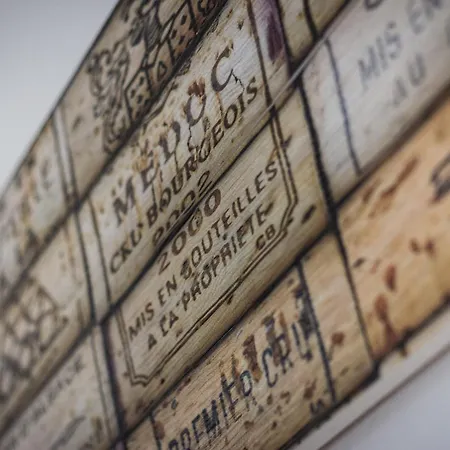 MEDOC
CRU BOURGEOIS
2002
MIS EN
AU
2000
MIS EN BOUTEILLES
A LA PROPRIETE
CB
PREMIER CRU